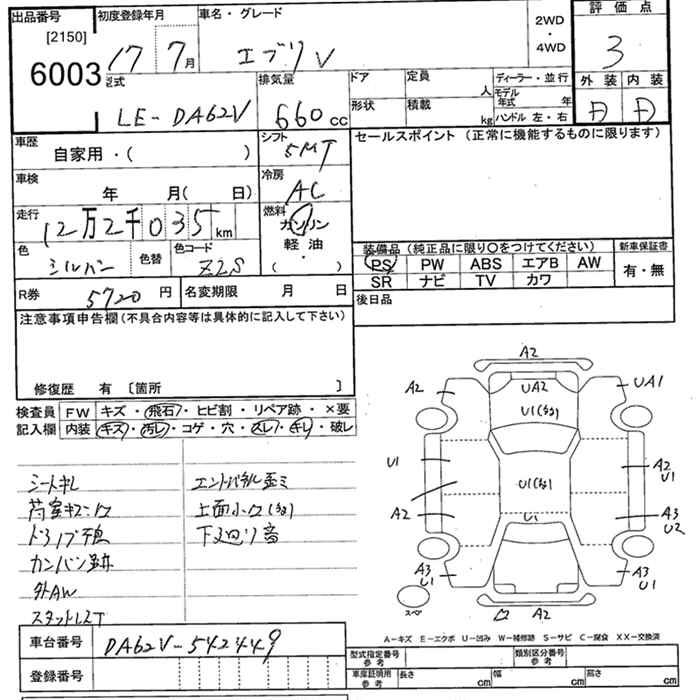 出品番号 初度登録年月 車名・グレード 2WD・4WD 評価点
[2150]
6003
17年7月 エブリV 3
型式 排気量 ドア 定員 人 ディーラー・並行 外装 内装
LE-DA62V 660cc 形状 積載 kg モデル年式 年 ハンドル 左・右 D D
車歴 シフト セールスポイント(正常に機能するものに限ります)
自家用・( ) 5MT
車検 冷房
年 月( 日) AC
走行 燃料
12万2千035km ガソリン
軽油
( ・ )
色 色替 色コード
シルバー Z2S
装備品(純正品に限り○をつけてください) 新車保証書
PS PW ABS エアB AW 有・無
SR ナビ TV カワ
R券 5720円 名変期限 月 日 後日品
注意事項申告欄(不具合内容等は具体的に記入して下さい)
修復歴 有 〔箇所 〕
検査員 FW キズ・飛石・ヒビ割・リペア跡・×要
記入欄 内装 キズ・汚レ・コゲ・穴・スレ・キレ・破レ
シートキレ エンドパネル歪ミ
荷室キズ・穴 上面小凹(多)
カンバン跡 下廻り音
外AW
A2
A2 UA2 UA1
U1(多)
U1 U1(多) A2 U1
A2 U1 A3 U2
A3 U1 A3 U1
スペ A2
A-キズ E-エクボ U-凹み W-補修跡 S-サビ C-腐食 XX-交換済
車台番号 DA62V-542449
型式指定番号 参考 類別区分番号 参考
登録番号
車庫証明用 参考 長さ cm 幅 cm 高さ cm